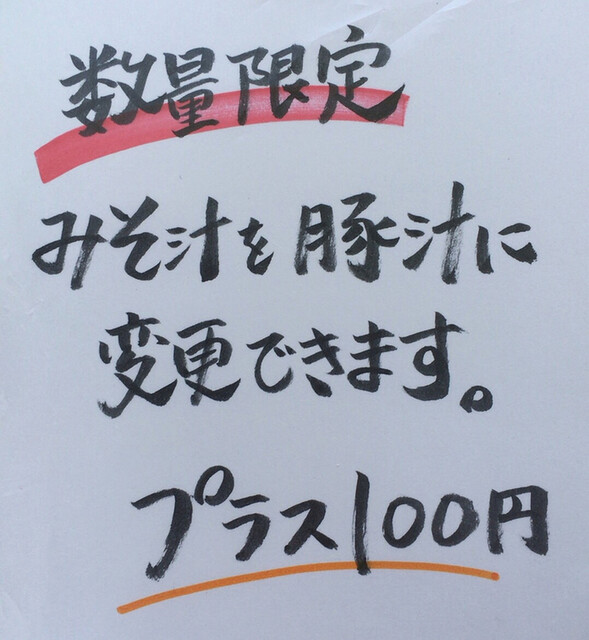 数量限定
みそ汁を豚汁に
変更できます。
プラス100円